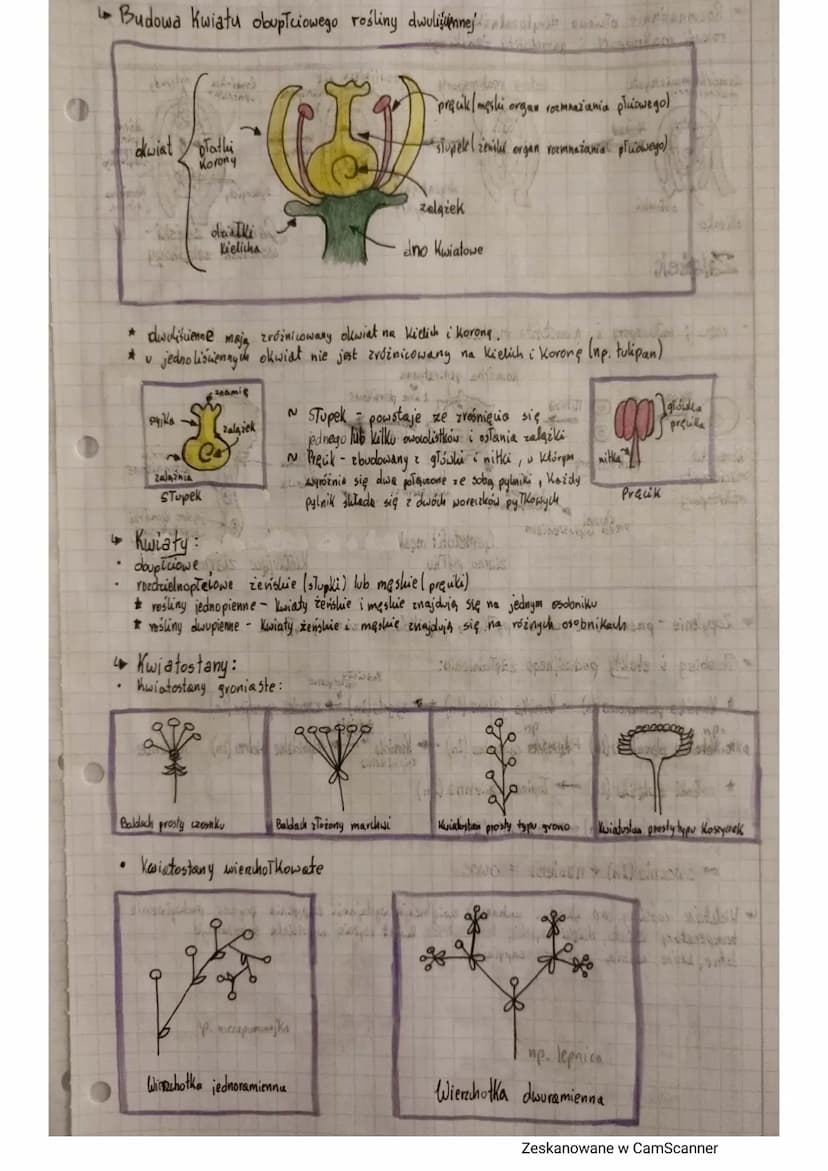 ↳ Budowa Kwiatu obupłciowego rośliny dwuliściennej
okwiat
płatki korony
działki kielicha
pręcik (męski organ rozmnażania płciowego)
słupek (żeński organ rozmnażania płciowego)
zalążek
dno kwiatowe
* dwuliścienne mają zróżnicowany okwiat na kielich i koronę.
* u jednoliściennych okwiat nie jest zróżnicowany na kielich i koronę (np. tulipan)
znamię
szyjka
zalążek
zalążnia
Słupek
~ Słupek - powstaje ze zrośnięcia się
jednego lub kilku owocolistków i osłania zalążki
~ Pręcik - zbudowany z główki i nitki, u którym
wyróżnia się dwa połączone ze sobą pylniki, każdy
pylnik składa się z dwóch woreczków pyłkowych
główka pręcika
nitka
Pręcik
↳ Kwiaty:
• obupłciowe
• rozdzielnopłciowe żeńskie (słupki) lub męskie (pręciki)
* rośliny jednopienne - kwiaty żeńskie i męskie znajdują się na jednym osobniku
* rośliny dwupienne - kwiaty żeńskie i męskie znajdują się na różnych osobnikach
↳ Kwiatostany:
• kwiatostany groniaste:
Baldach prosty czosnku
Baldach złożony marchwi
Kwiatostan prosty typu grono
Kwiatostan prosty typu Koszyczek
• Kwiatostany wierzchotkowate
np. niezapominajka
Wierzchotka jednoramienna
np. lepnica
Wierzchotka dwuramienna
Zeskanowane w CamScanner